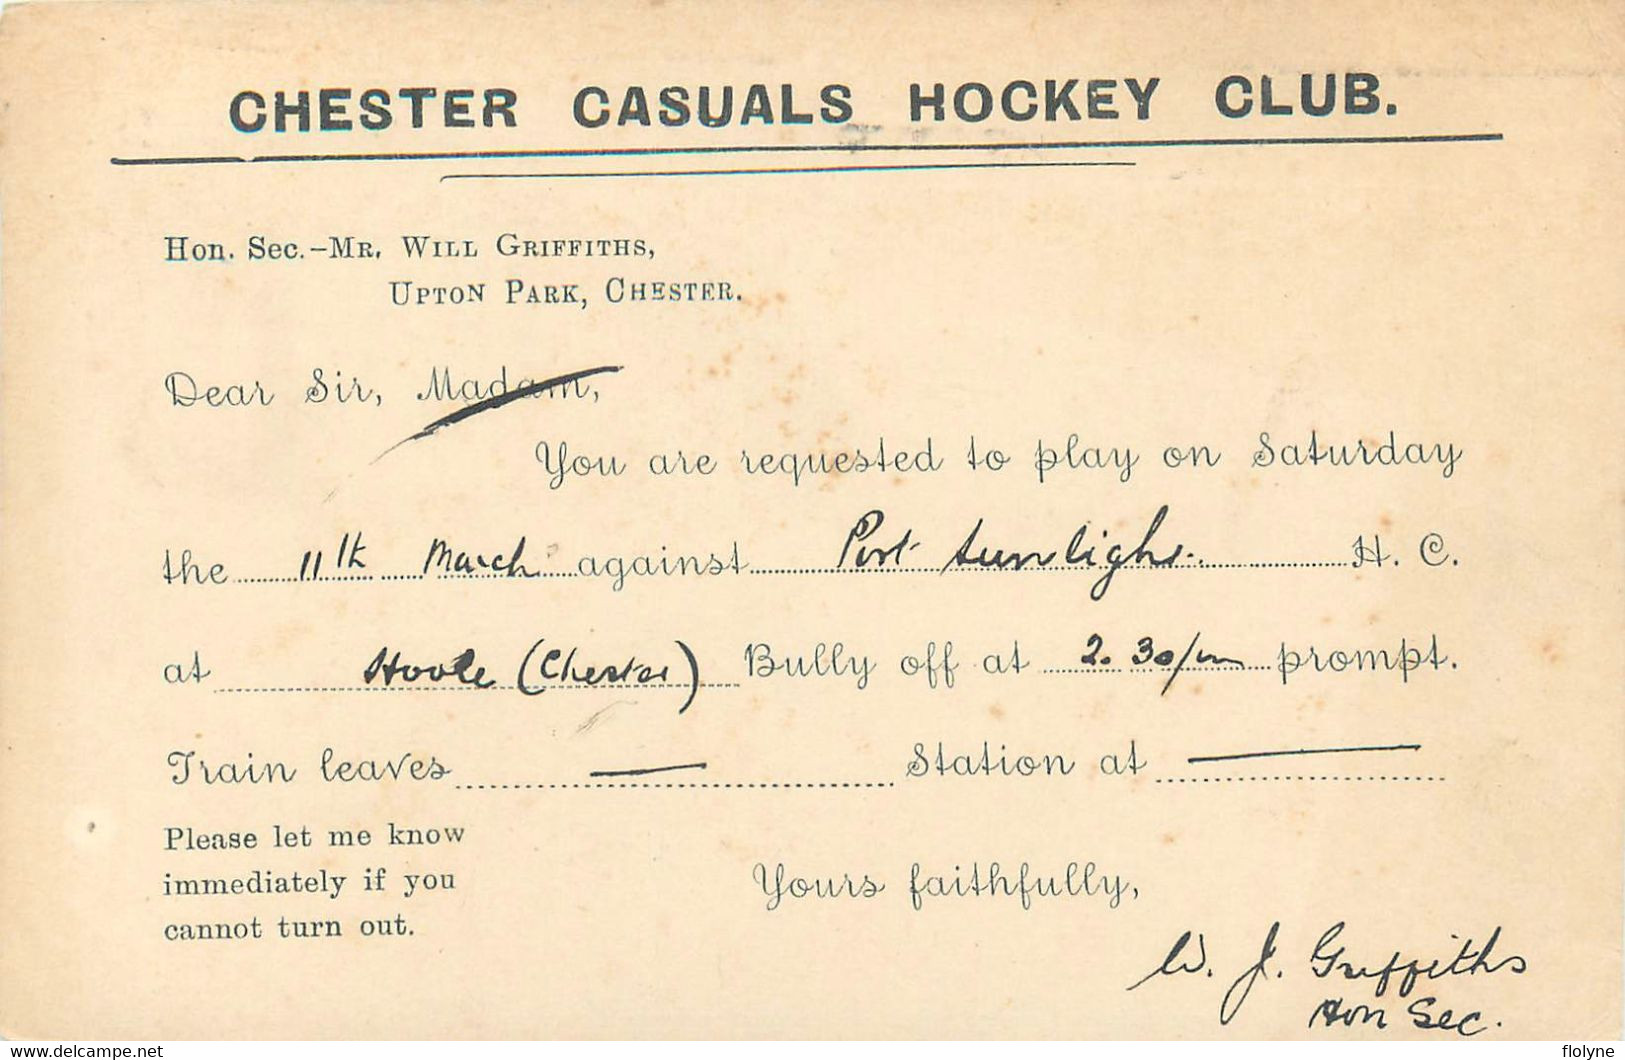 CHESTER CASUALS HOCKEY CLUB.
Hon. Sec.-Mr. Will Griffiths,
Upton Park, Chester.
Dear Sir, Madam,
You are requested to play on Saturday
the 11th March against Port Sunlight H. C.
at Hoole (Chester) Bully off at 2.30/pm prompt.
Train leaves — Station at —
Please let me know
immediately if you
cannot turn out.
Yours faithfully,
W. J. Griffiths
Hon Sec.
https://www.delcampe.net
flolyne